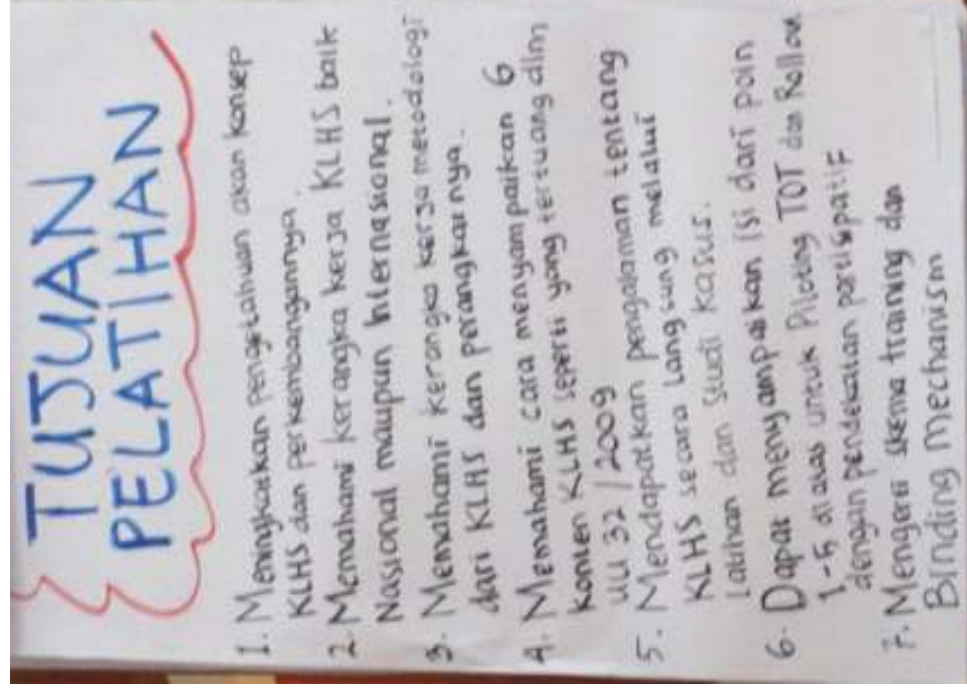 TUJUAN
PELATIHAN
1. Meningkatkan pengetahuan akan konsep
KLHS dan perkembangannya.
2. Memahami kerangka kerja KLHS baik
Nasional maupun Internasional.
3. Memahami kerangka kerja metodologi
dari KLHS dan perangkatnya.
4. Memahami cara menyampaikan 6
konten KLHS seperti yang tertuang dlm
UU 32/2009
5. Mendapatkan pengalaman tentang
KLHS secara langsung melalui
latihan dan studi kasus.
6. Dapat menyampaikan isi dari poin
1-5 di atas untuk Piloting TOT dan Rollout
dengan pendekatan partisipatif
7. Mengerti skema training dan
Binding Mechanism